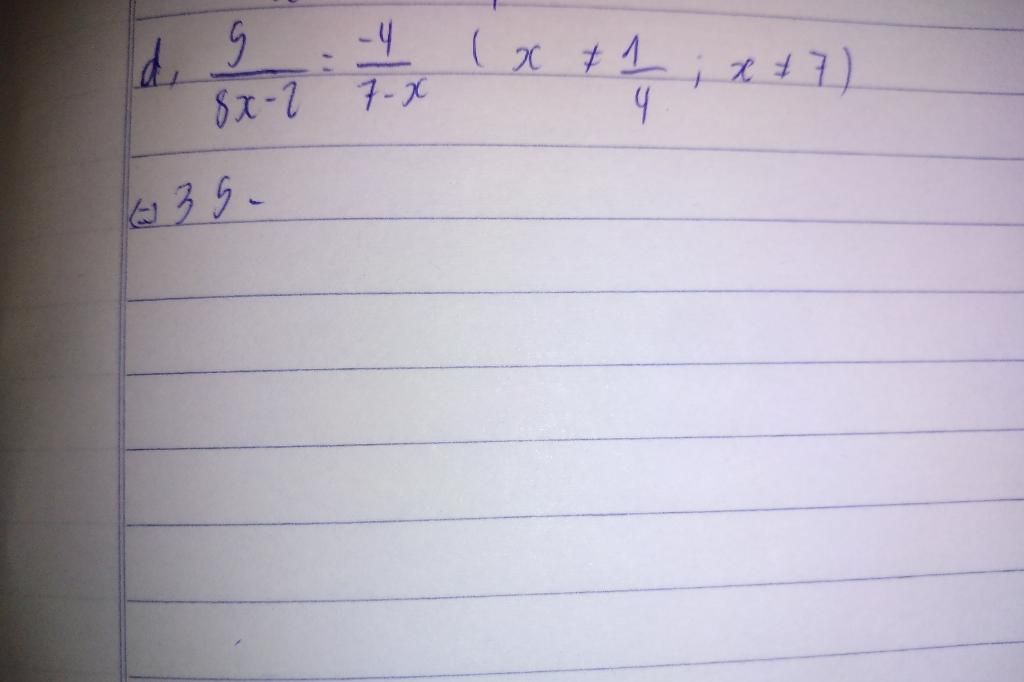 d, 5/(8x-2) = -4/(7-x) ( x ≠ 1/4 ; x ≠ 7 )
⇔ 35 -